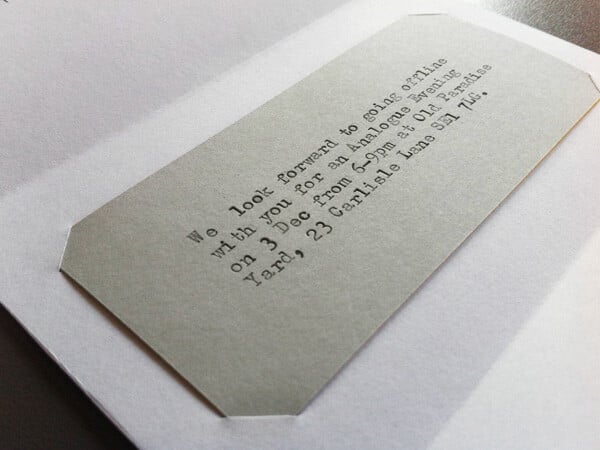 We look forward to going offline
with you for an Analogue Evening
on 3 Dec from 6-9pm at Old Paradise
Yard, 23 Carlisle Lane SE1 7LG.